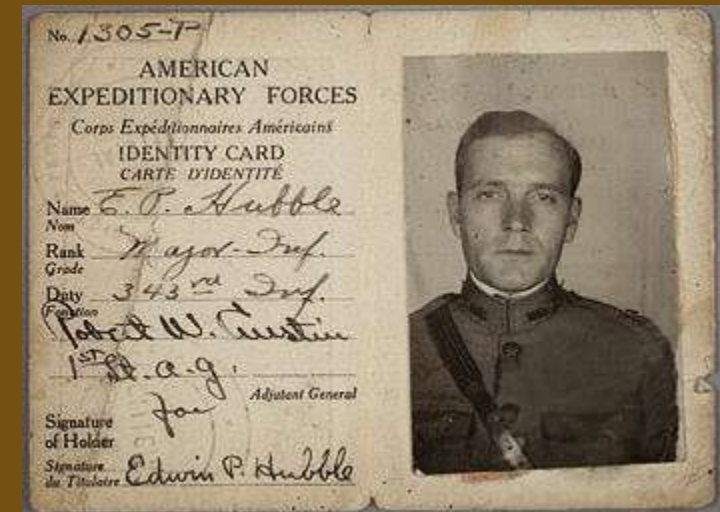 No. 1305-P
AMERICAN
EXPEDITIONARY FORCES
Corps Expéditionnaires Américains
IDENTITY CARD
CARTE D'IDENTITÉ
Name E. P. Hubble
Nom
Rank Major - Inf.
Grade
Duty 343rd Inf.
Fonction
Robert W. Austin
1st Lt. A.G.
Adjutant General
for
Signature
of Holder
Signature
du Titulaire Edwin P. Hubble